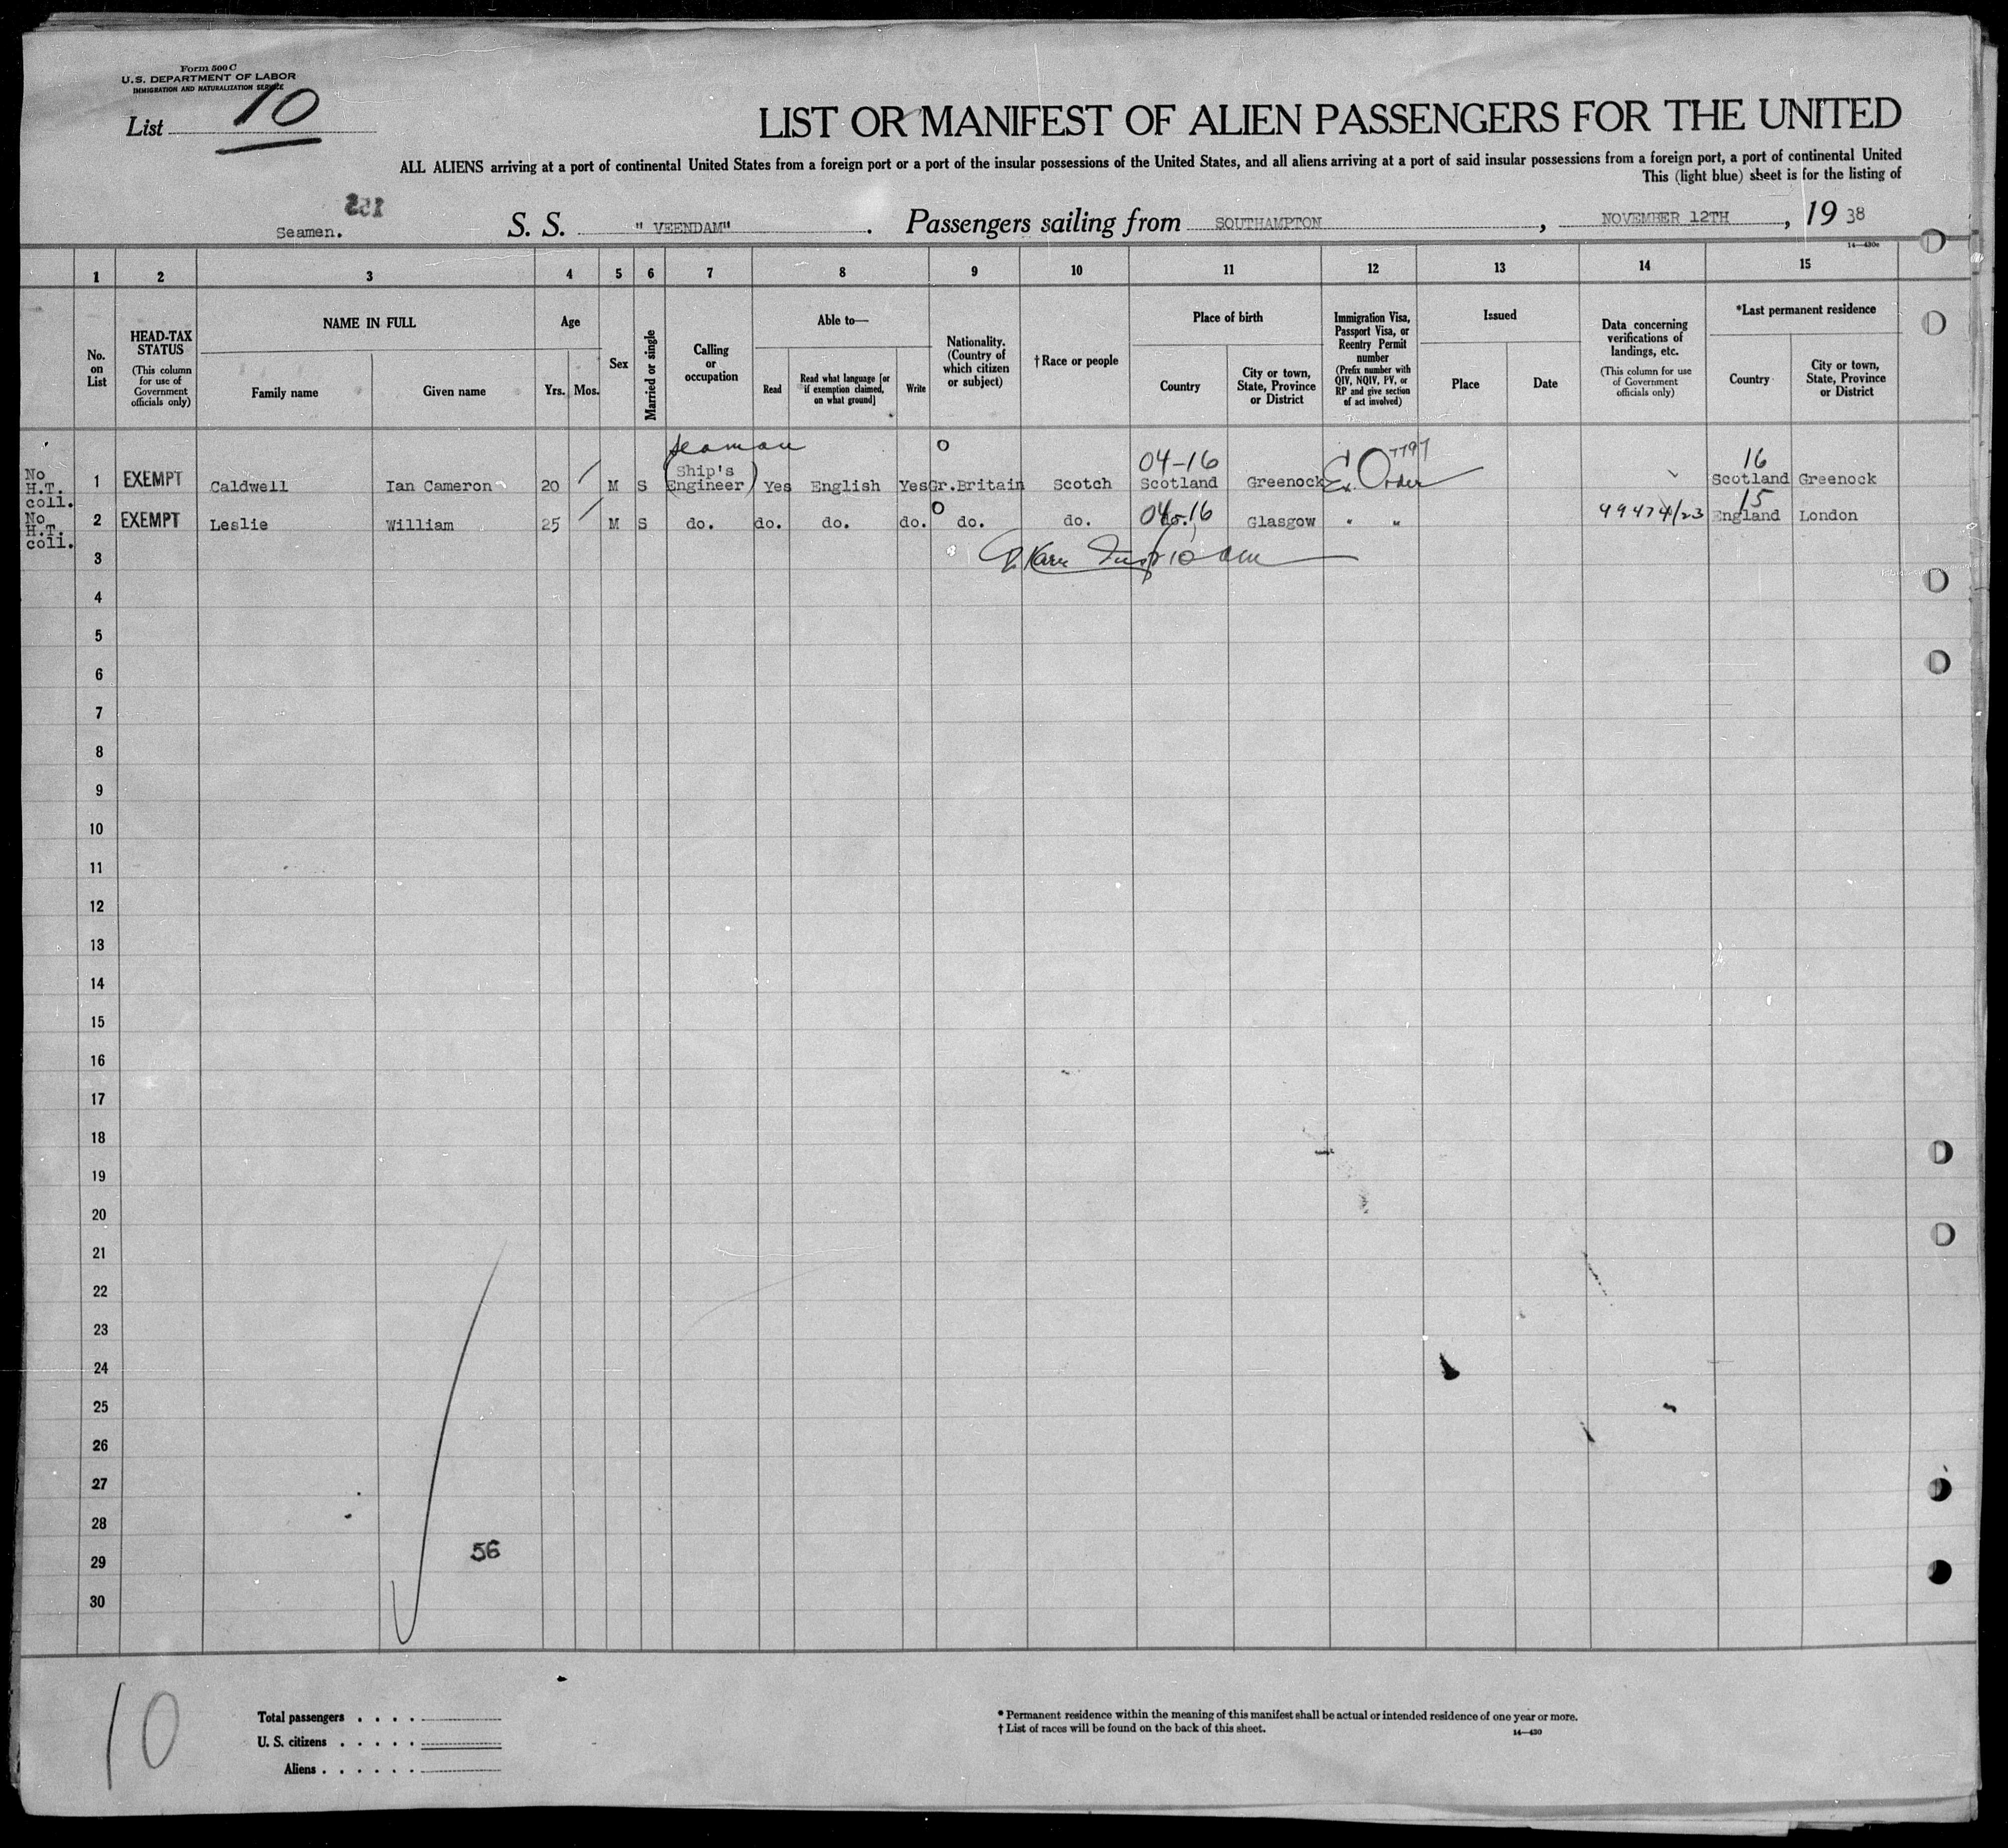 Form 500 C
U.S. DEPARTMENT OF LABOR
IMMIGRATION AND NATURALIZATION SERVICE
List 10
LIST OR MANIFEST OF ALIEN PASSENGERS FOR THE UNITED
ALL ALIENS arriving at a port of continental United States from a foreign port or a port of the insular possessions of the United States, and all aliens arriving at a port of said insular possessions from a foreign port, a port of continental United
This (light blue) sheet is for the listing of
Seamen. S. S. " VEENDAM" . Passengers sailing from SOUTHAMPTON , NOVEMBER 12TH , 19 38
14—430c
1 2 3 4 5 6 7 8 9 10 11 12 13 14 15
No. on List
HEAD-TAX STATUS (This column for use of Government officials only)
NAME IN FULL
Family name
Given name
Age
Yrs. Mos.
Sex
Married or single
Calling or occupation
Able to—
Read
Read what language [or if exemption claimed, on what ground]
Write
Nationality. (Country of which citizen or subject)
†Race or people
Place of birth
Country
City or town, State, Province or District
Immigration Visa, Passport Visa, or Reentry Permit number (Prefix number with QIV, NQIV, PV, or RP and give section of act involved)
Issued
Place
Date
Data concerning verifications of landings, etc. (This column for use of Government officials only)
*Last permanent residence
Country
City or town, State, Province or District
seaman 0 04-16 7797 16
No H.T. coll. 1 EXEMPT Caldwell Ian Cameron 20 M S (Ship's Engineer) Yes English Yes Gr.Britain Scotch Scotland Greenock Ex. Order Scotland Greenock
0 04-16 15
No H.T. coll. 2 EXEMPT Leslie William 25 M S do. do. do. do. do. do. do. Glasgow " " 99474/23 England London
3
4
5
6
7
8
9
10
11
12
13
14
15
16
17
18
19
20
21
22
23
24
25
26
27
28
29
30
56
10
Total passengers . . . .
U. S. citizens . . . . .
Aliens . . . . . .
* Permanent residence within the meaning of this manifest shall be actual or intended residence of one year or more.
† List of races will be found on the back of this sheet.
14—430